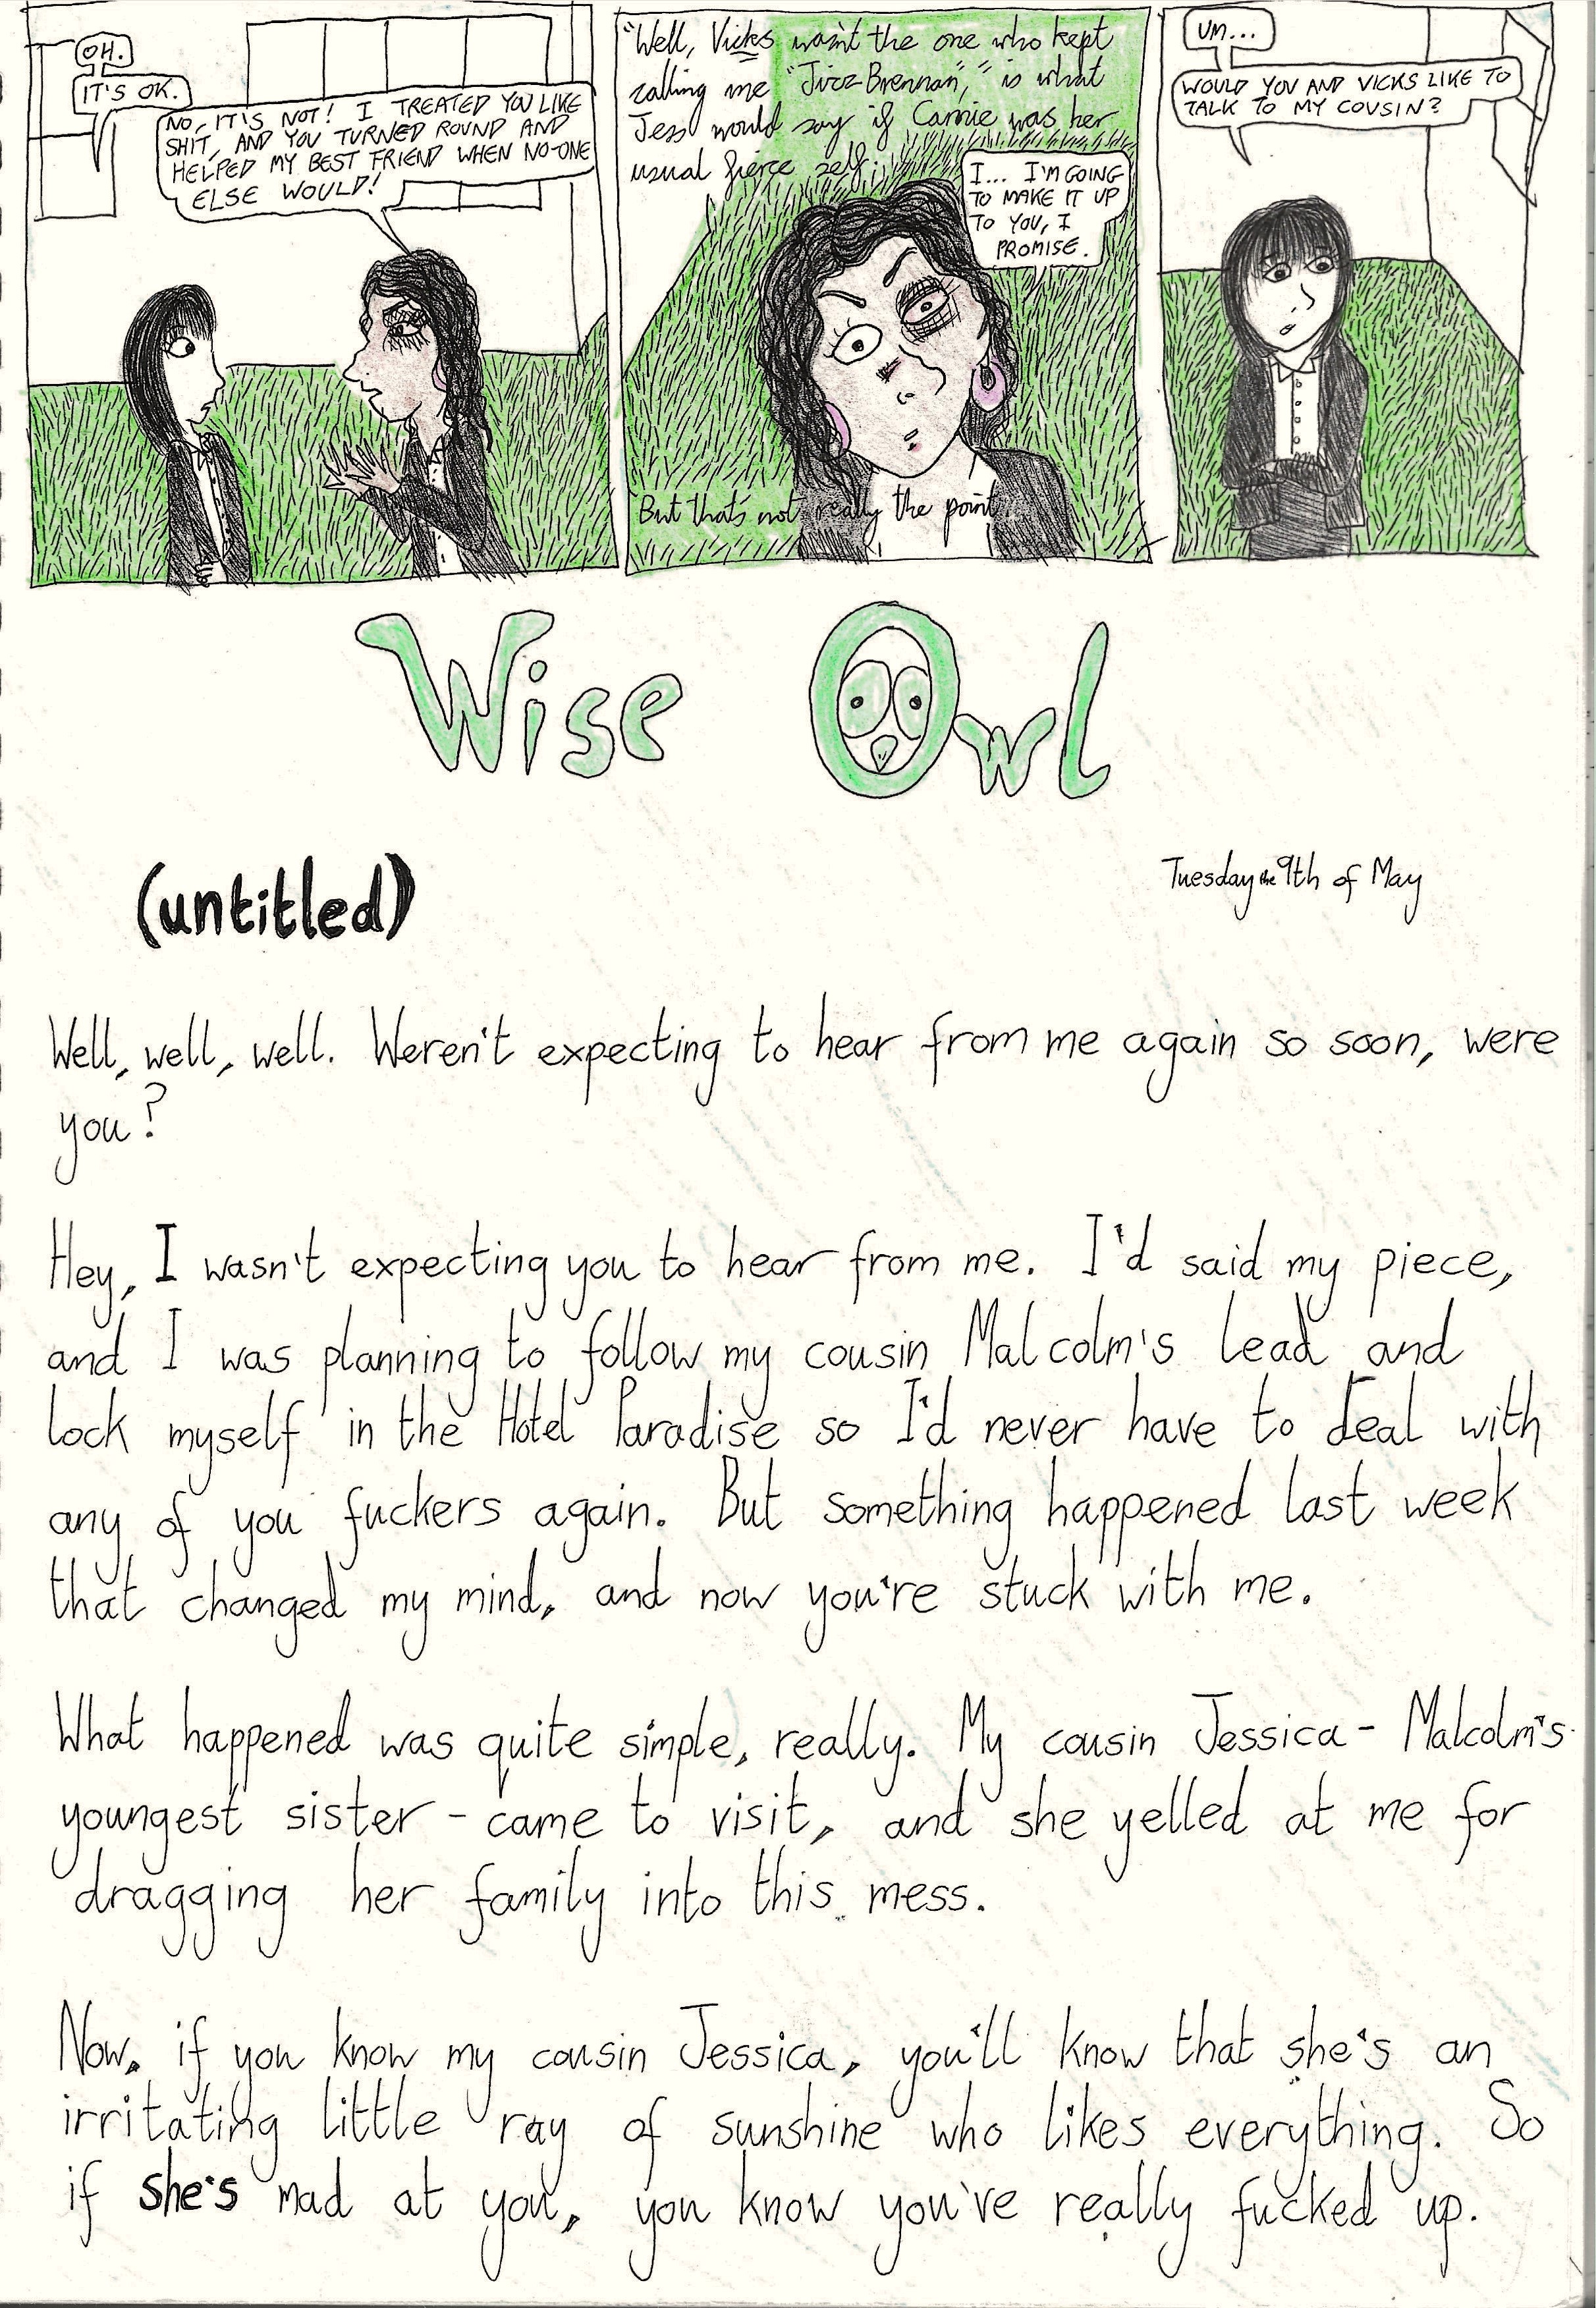 OH.
IT'S OK.
NO, IT'S NOT! I TREATED YOU LIKE
SHIT, AND YOU TURNED ROUND AND
HELPED MY BEST FRIEND WHEN NO-ONE
ELSE WOULD!
"Well, Vicks wasn't the one who kept
calling me "Jizz-Brennan," is what
Jess would say if Carrie was her
usual fierce self.
I... I'M GOING
TO MAKE IT UP
TO YOU, I
PROMISE.
But that's not really the point.
UM...
WOULD YOU AND VICKS LIKE TO
TALK TO MY COUSIN?
Wise Owl
(untitled)
Tuesday the 9th of May
Well, well, well. Weren't expecting to hear from me again so soon, were
you?
Hey, I wasn't expecting you to hear from me. I'd said my piece,
and I was planning to follow my cousin Malcolm's lead and
lock myself in the Hotel Paradise so I'd never have to deal with
any of you fuckers again. But something happened last week
that changed my mind, and now you're stuck with me.
What happened was quite simple, really. My cousin Jessica - Malcolm's
youngest sister - came to visit, and she yelled at me for
dragging her family into this mess.
Now, if you know my cousin Jessica, you'll know that she's an
irritating little ray of sunshine who likes everything. So
if she's mad at you, you know you've really fucked up.